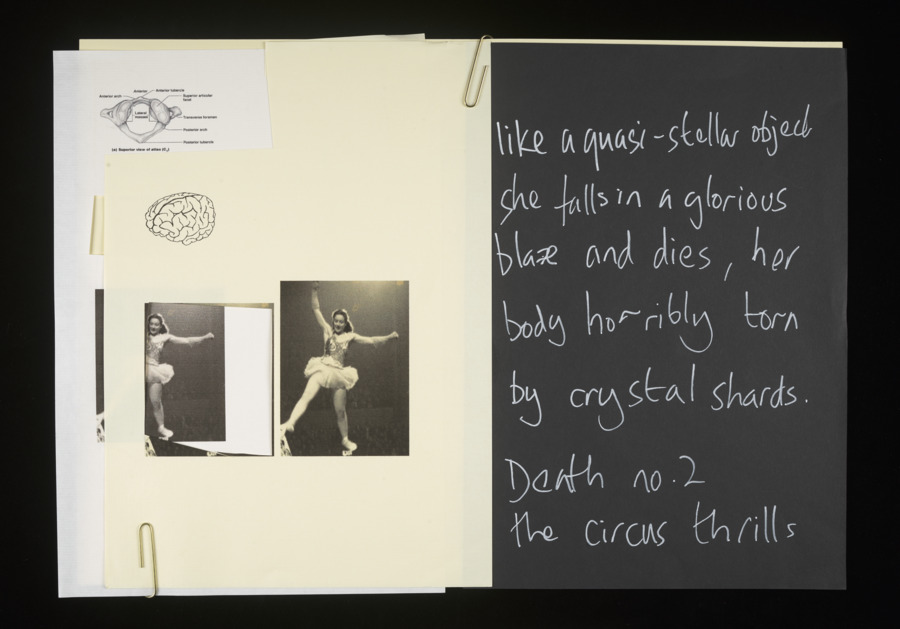 Anterior
Anterior tubercle
Anterior arch
Superior articular
facet
Lateral
masses
Transverse foramen
Posterior arch
Posterior tubercle
(a) Superior view of atlas (C₁)
like a quasi-stellar object
she falls in a glorious
blaze and dies, her
body horribly torn
by crystal shards.
Death no.2
the circus thrills